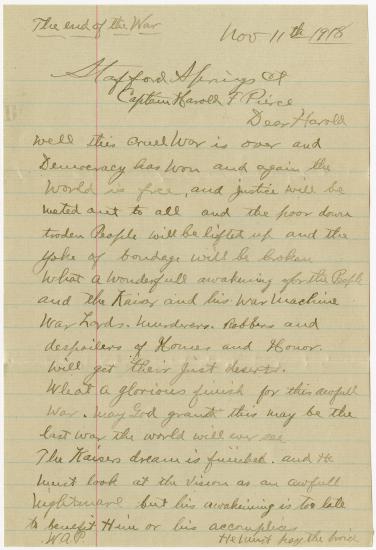 The end of the War
Nov 11th 1918
Stafford Springs Ct
Captain Harold F Pierce
Dear Harold
Well this cruel War is over and
Democracy has Won and again the
World is free, and justice will be
meted out to all and the poor down
troden People will be lifted up and the
yoke of bondage will be broken
What a wonderfull awakening for the People
and the Kaiser and his War Machine
War Lords. Murderers. Robbers and
despoilers of Homes and Honor.
Will get their just deserts.
What a glorious finish for this awfull
War. may God grant this may be the
last war the world will ever see
The Kaisers dream is finished. and He
must look at the vision as an awfull
Nightmare but his awakening is too late
to benefit Him or his accomplices
W.A.P. He must pay the price